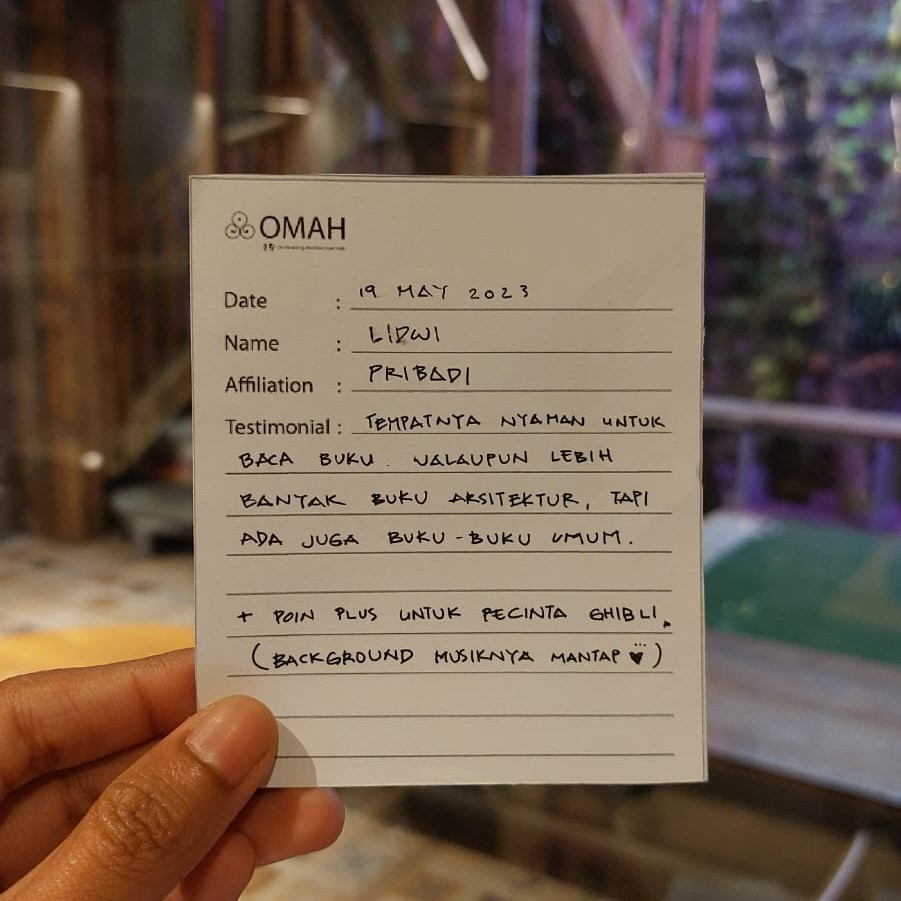 OMAH
Date : 19 MAY 2023
Name : LIDWI
Affiliation : PRIBADI
Testimonial : TEMPATNYA NYAMAN UNTUK
BACA BUKU. WALAUPUN LEBIH
BANYAK BUKU ARSITEKTUR, TAPI
ADA JUGA BUKU-BUKU UMUM.
+ POIN PLUS UNTUK PECINTA GHIBLI.
(BACKGROUND MUSIKNYA MANTAP ♥)